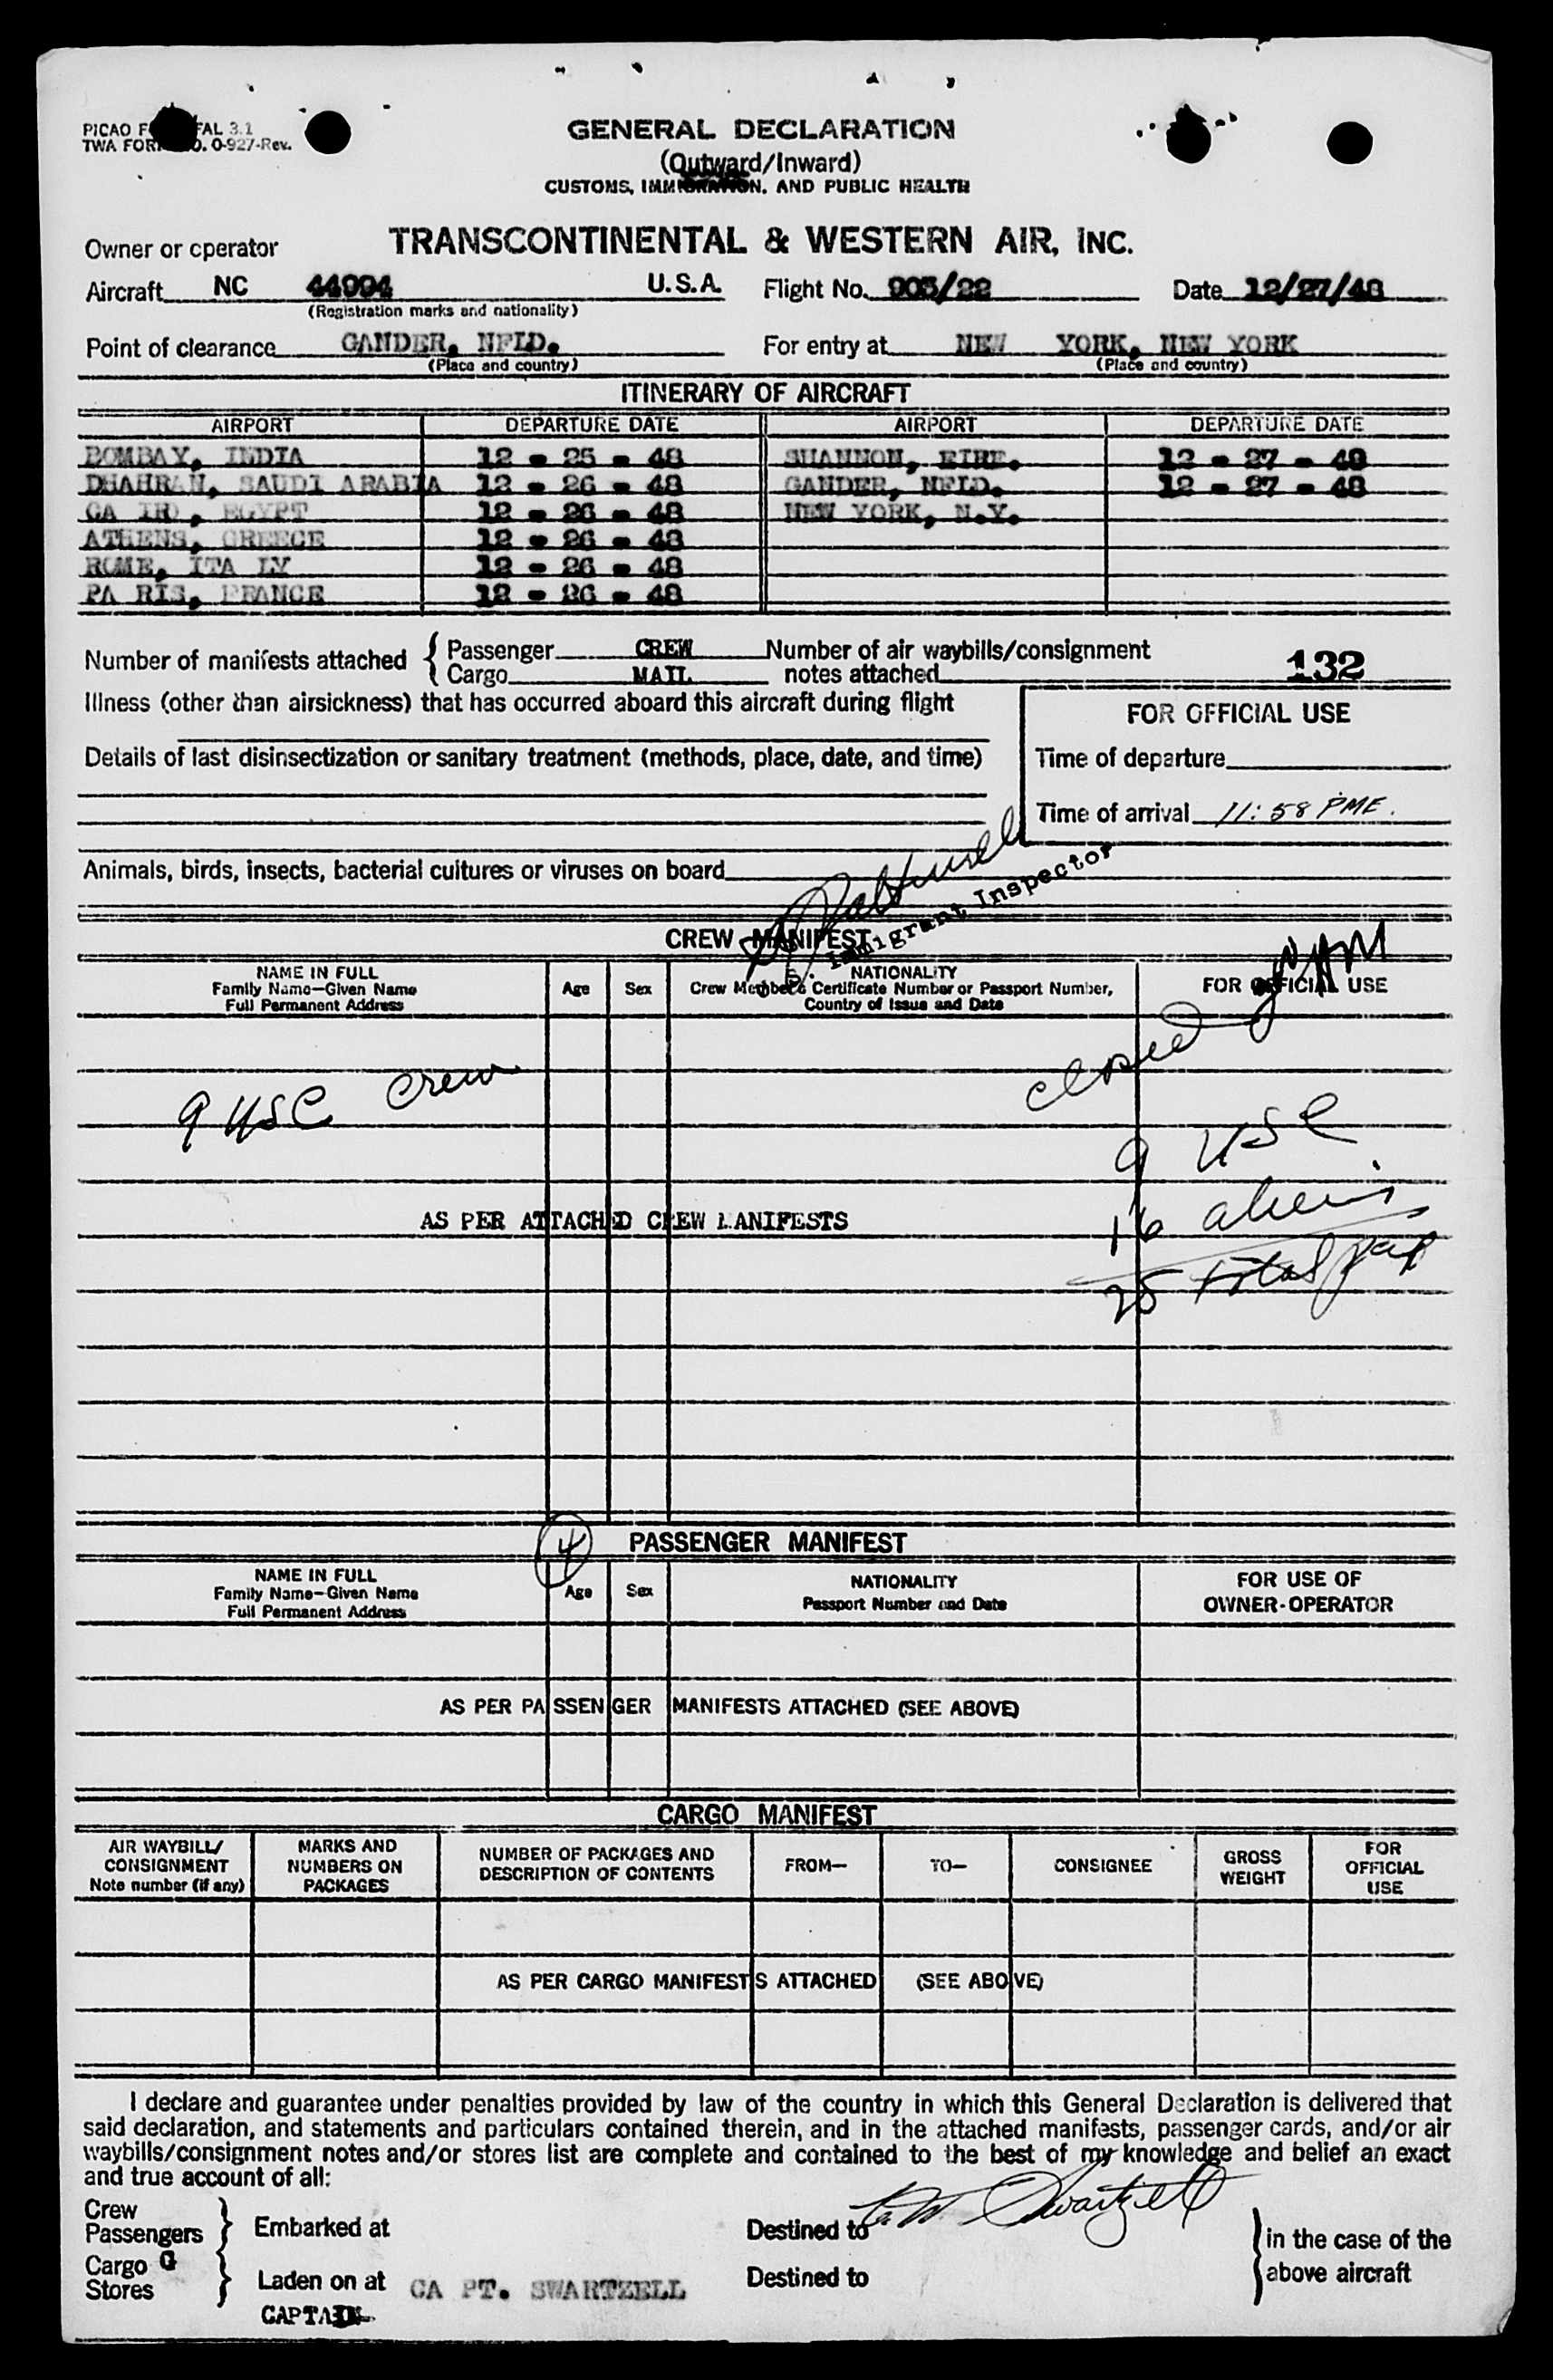 PICAO F FAL 3.1
TWA FOR O. O-927-Rev.
GENERAL DECLARATION
(Outward/Inward)
CUSTOMS, IMMIGRATION, AND PUBLIC HEALTH
Owner or operator TRANSCONTINENTAL & WESTERN AIR, INC.
Aircraft NC 44994 U.S.A. Flight No. 905/22 Date 12/27/48
(Registration marks and nationality)
Point of clearance GANDER, NFLD. For entry at NEW YORK, NEW YORK
(Place and country) (Place and country)
ITINERARY OF AIRCRAFT
AIRPORT DEPARTURE DATE AIRPORT DEPARTURE DATE
BOMBAY, INDIA 12 - 25 - 48 SHANNON, EIRE. 12 - 27 - 48
DHAHRAN, SAUDI ARABIA 12 - 26 - 48 GANDER, NFLD. 12 - 27 - 48
CA IRO, EGYPT 12 - 26 - 48 NEW YORK, N.Y.
ATHENS, GREECE 12 - 26 - 48
ROME, ITA LY 12 - 26 - 48
PA RIS, FRANCE 12 - 26 - 48
Number of manifests attached { Passenger CREW Number of air waybills/consignment
Cargo MAIL notes attached 132
Illness (other than airsickness) that has occurred aboard this aircraft during flight
FOR OFFICIAL USE
Details of last disinsectization or sanitary treatment (methods, place, date, and time)
Time of departure
Time of arrival 11:58 PME.
Animals, birds, insects, bacterial cultures or viruses on board
U.S. Immigrant Inspector
CREW MANIFEST
NAME IN FULL
Family Name—Given Name
Full Permanent Address
Age Sex
NATIONALITY
Crew Member's Certificate Number or Passport Number,
Country of Issue and Date
FOR OFFICIAL USE
closed
9 USC Crew
9 USC
16 aliens
25 total pax
AS PER ATTACHED CREW MANIFESTS
4
PASSENGER MANIFEST
NAME IN FULL
Family Name—Given Name
Full Permanent Address
Age Sex
NATIONALITY
Passport Number and Date
FOR USE OF
OWNER-OPERATOR
AS PER PASSENGER MANIFESTS ATTACHED (SEE ABOVE)
CARGO MANIFEST
AIR WAYBILL/
CONSIGNMENT
Note number (if any)
MARKS AND
NUMBERS ON
PACKAGES
NUMBER OF PACKAGES AND
DESCRIPTION OF CONTENTS
FROM—
TO—
CONSIGNEE
GROSS
WEIGHT
FOR
OFFICIAL
USE
AS PER CARGO MANIFESTS ATTACHED (SEE ABOVE)
I declare and guarantee under penalties provided by law of the country in which this General Declaration is delivered that
said declaration, and statements and particulars contained therein, and in the attached manifests, passenger cards, and/or air
waybills/consignment notes and/or stores list are complete and contained to the best of my knowledge and belief an exact
and true account of all:
Crew
Passengers } Embarked at Destined to Swartzell
Cargo
Stores } Laden on at CA PT. SWARTZELL Destined to
in the case of the
above aircraft
CAPTAIN